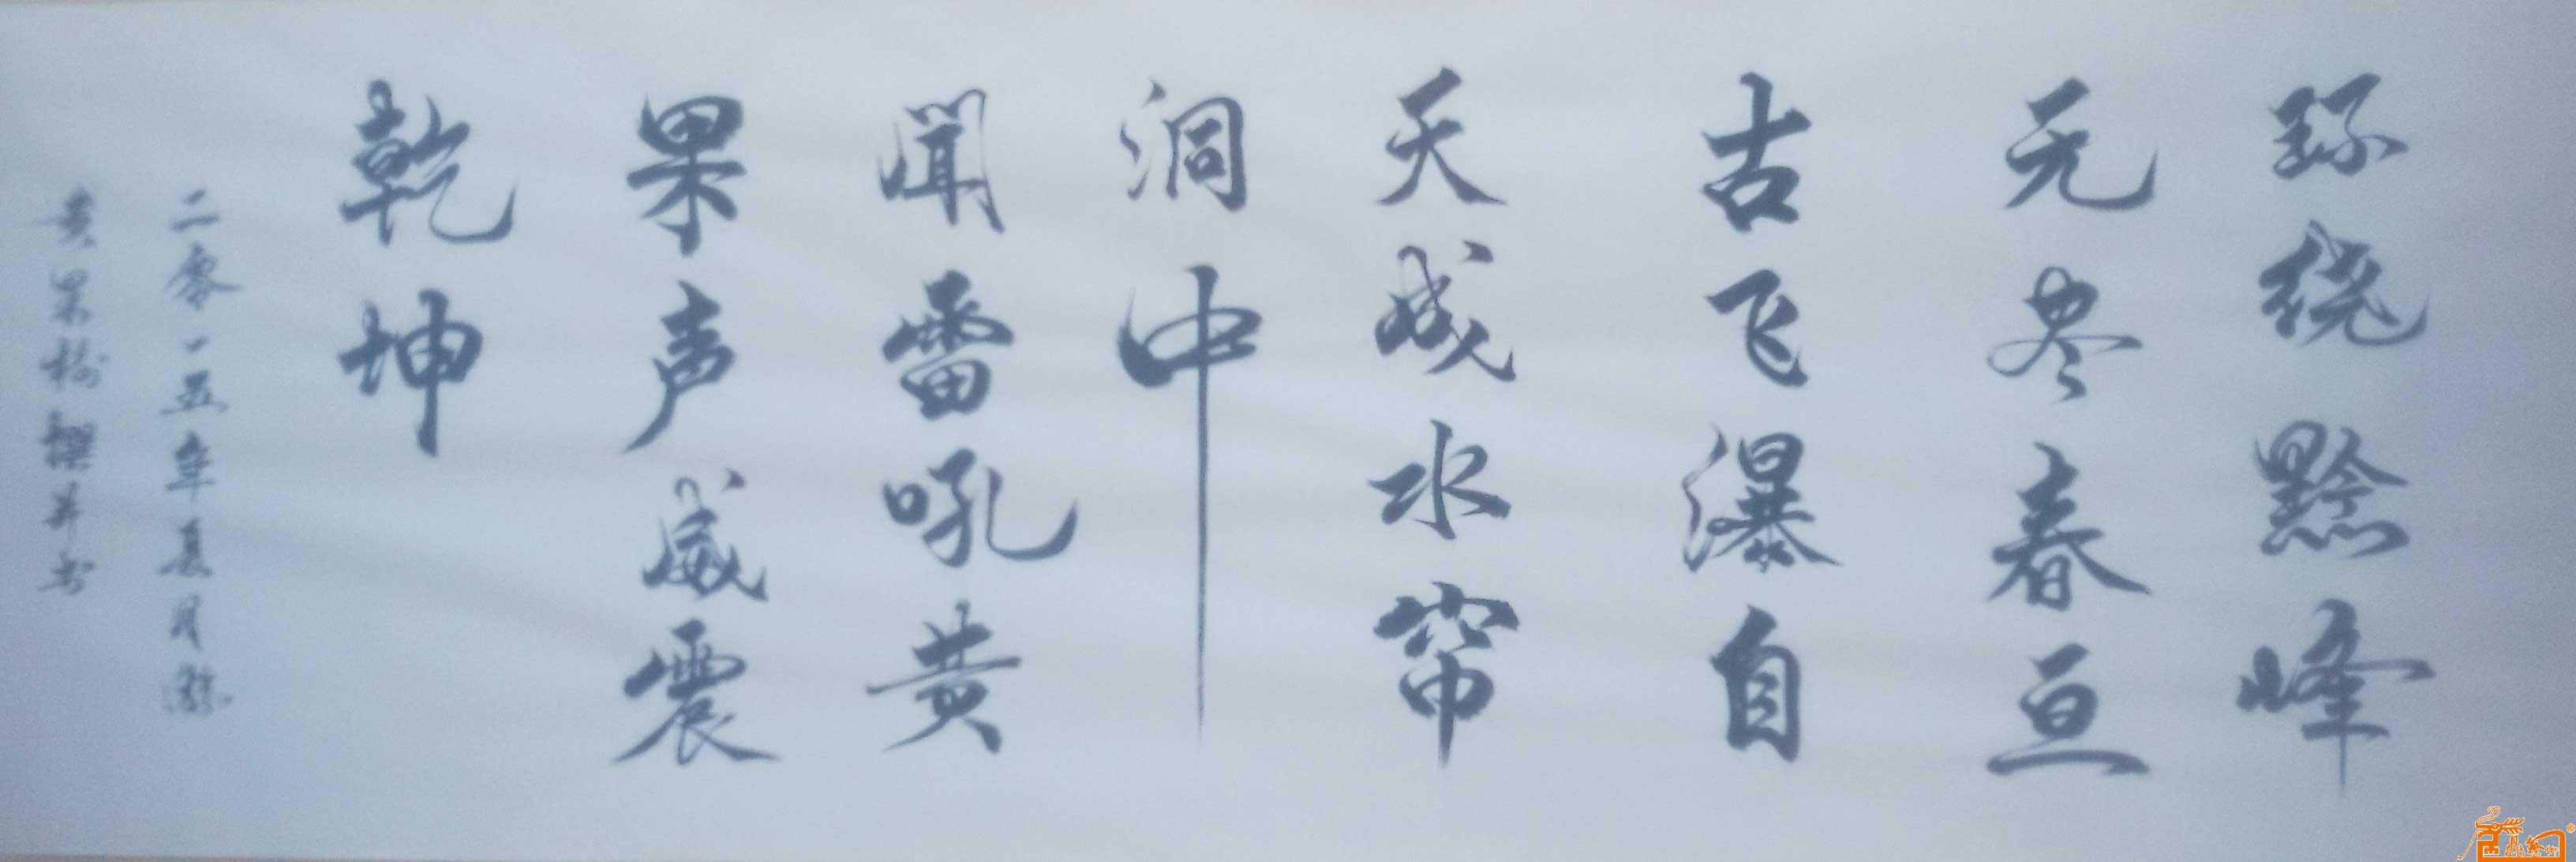 环绕黔峰
无尽春亘
古飞瀑自
天成水帘
洞中
闻雷吼黄
果声威震
乾坤
二零一五年夏月游
黄果树撰并书